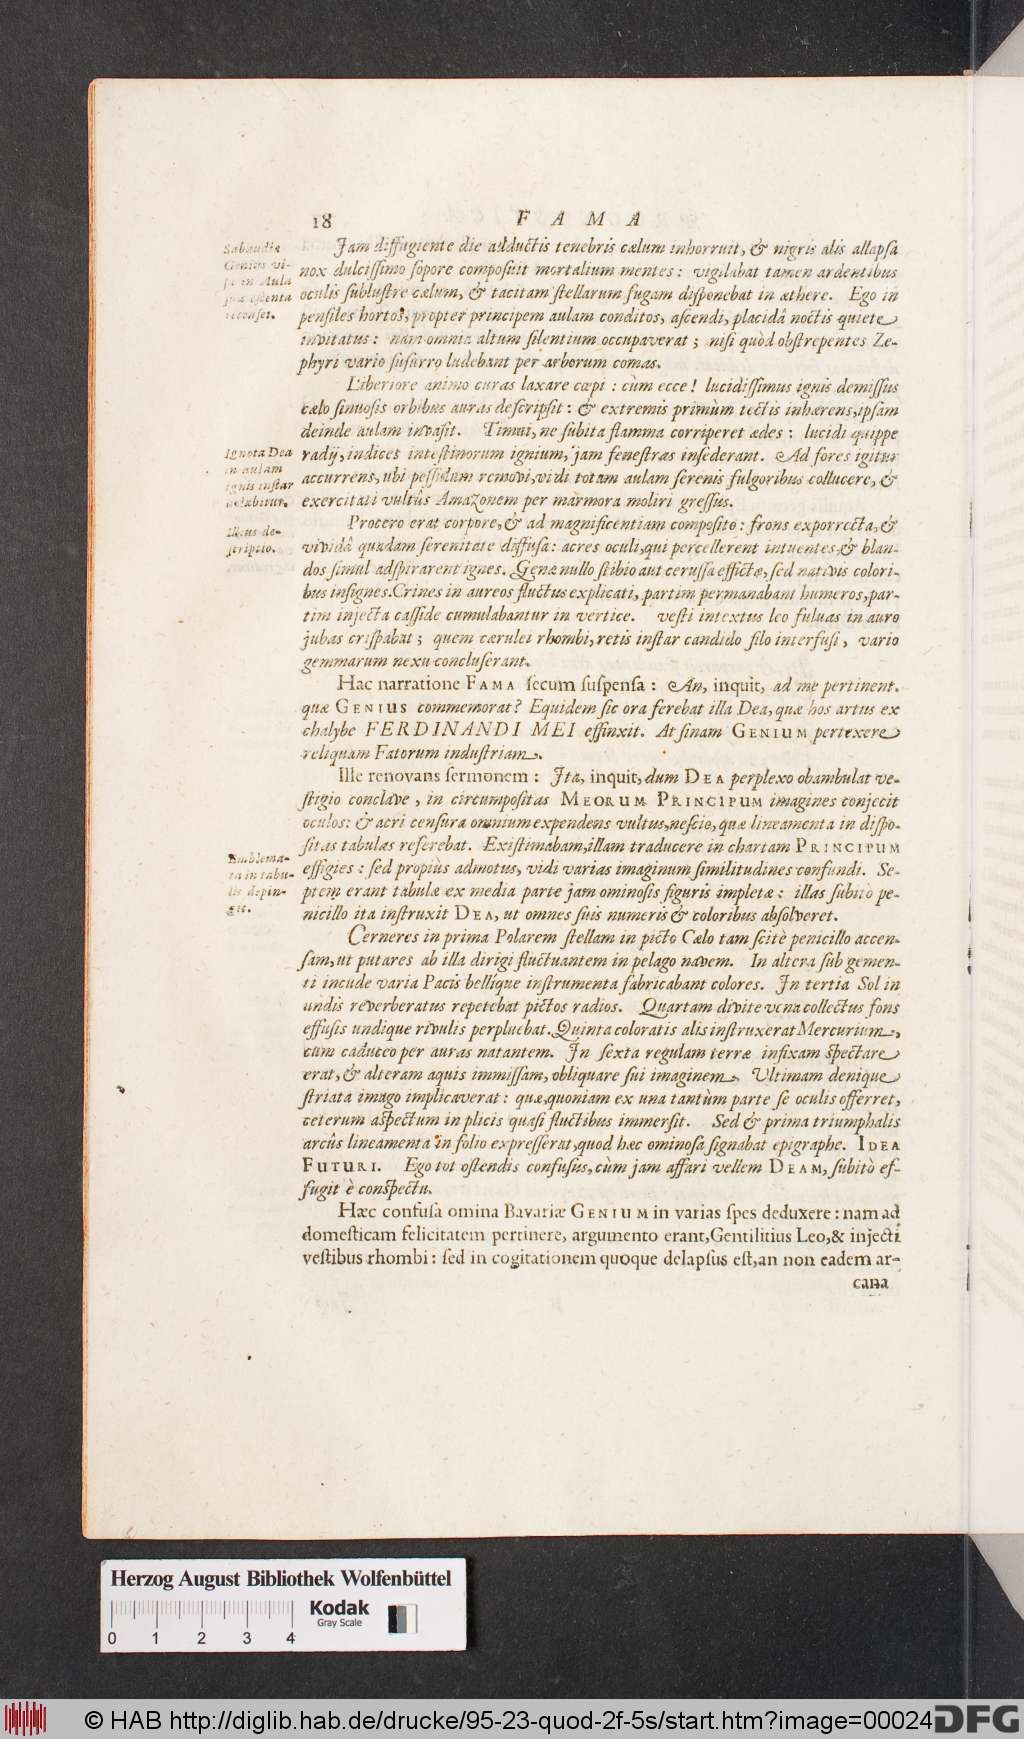 18 F A M A
Sabaudiæ
Genius vi-
sa in Aula
sua ostenta
recenset.
Jam diffugiente die adductis tenebris cælum inhorruit, & nigris alis allapsa
nox dulcissimo sopore composuit mortalium mentes: vigilabat tamen ardentibus
oculis sublustre cælum, & tacitam stellarum fugam disponebat in æthere. Ego in
pensiles hortos, propter principem aulam conditos, ascendi, placidâ noctis quiete
invitatus: nam omnia altum silentium occupaverat; nisi quòd obstrepentes Ze-
phyri vario susurro ludebant per arborum comas.
Liberiore animo curas laxare cœpi: cùm ecce! lucidissimus ignis demissus
cælo sinuosis orbibus auras descripsit: & extremis primùm tectis inhærens, ipsam
deinde aulam invasit. Timui, ne subita flamma corriperet ædes: lucidi quippe
Ignota Dea
in aulam
ignis instar
delabitur.
radij, indices intestinorum ignium, jam fenestras insederant. Ad fores igitur
accurrens, ubi pessulum removi, vidi totam aulam serenis fulgoribus collucere, &
exercitati vultûs Amazonem per marmora moliri gressus.
Ejus de-
scriptio.
Procero erat corpore, & ad magnificentiam composito: frons exporrecta, &
vividâ quadam serenitate diffusa: acres oculi, qui percellerent intuentes, & blan-
dos simul adspirarent ignes. Genæ nullo stibio aut cerussa effictæ, sed nativis colori-
bus insignes. Crines in aureos fluctus explicati, partim permanabant humeros, par-
tim injecta casside cumulabantur in vertice. vesti intextus leo fuluas in auro
jubas crispabat; quem cærulei rhombi, retis instar candido filo interfusi, vario
gemmarum nexu concluserant.
Hac narratione FAMA secum suspensa: An, inquit, ad me pertinent.
quæ GENIUS commemorat? Equidem sic ora ferebat illa Dea, quæ hos artus ex
chalybe FERDINANDI MEI effinxit. At sinam GENIUM pertexere
reliquam Fatorum industriam.
Ille renovans sermonem: Ita, inquit, dum DEA perplexo obambulat ve-
stigio conclave, in circumpositas MEORUM PRINCIPUM imagines conjecit
oculos: & acri censura omnium expendens vultus, nescio, quæ lineamenta in dispo-
sitas tabulas referebat. Existimabam, illam traducere in chartam PRINCIPUM
Emblema-
ta in tabu-
lis depin-
git.
effigies: sed propiùs admotus, vidi varias imaginum similitudines confundi. Se-
ptem erant tabulæ ex media parte jam ominosis figuris impletæ: illas subitò pe-
nicillo ita instruxit DEA, ut omnes suis numeris & coloribus absolveret.
Cerneres in prima Polarem stellam in picto Cælo tam scitè penicillo accen-
sam, ut putares ab illa dirigi fluctuantem in pelago navem. In altera sub gemen-
ti incude varia Pacis bellíque instrumenta fabricabant colores. In tertia Sol in
undis reverberatus repetebat pictos radios. Quartam divite vena collectus fons
effusis undique rivulis perpluebat. Quinta coloratis alis instruxerat Mercurium,
cum caduceo per auras natantem. In sexta regulam terræ infixam spectare
erat, & alteram aquis immissam, obliquare sui imaginem. Ultimam denique
striata imago implicaverat: quæ, quoniam ex una tantùm parte se oculis offerret,
ceterum aspectum in plicis quasi fluctibus immersit. Sed & prima triumphalis
arcûs lineamenta in folio expresserat, quod hæc ominosa signabat epigraphe. IDEA
FUTURI. Ego tot ostendis confusus, cùm jam affari vellem DEAM, subitò ef-
fugit è conspectu.
Hæc confusa omina Bavariæ GENIUM in varias spes deduxere: nam ad
domesticam felicitatem pertinere, argumento erant, Gentilitius Leo, & injecti
vestibus rhombi: sed in cogitationem quoque delapsus est, an non eadem ar-
cana
Herzog August Bibliothek Wolfenbüttel
Kodak
Gray Scale
0 1 2 3 4
© HAB http://diglib.hab.de/drucke/95-23-quod-2f-5s/start.htm?image=00024
DFG